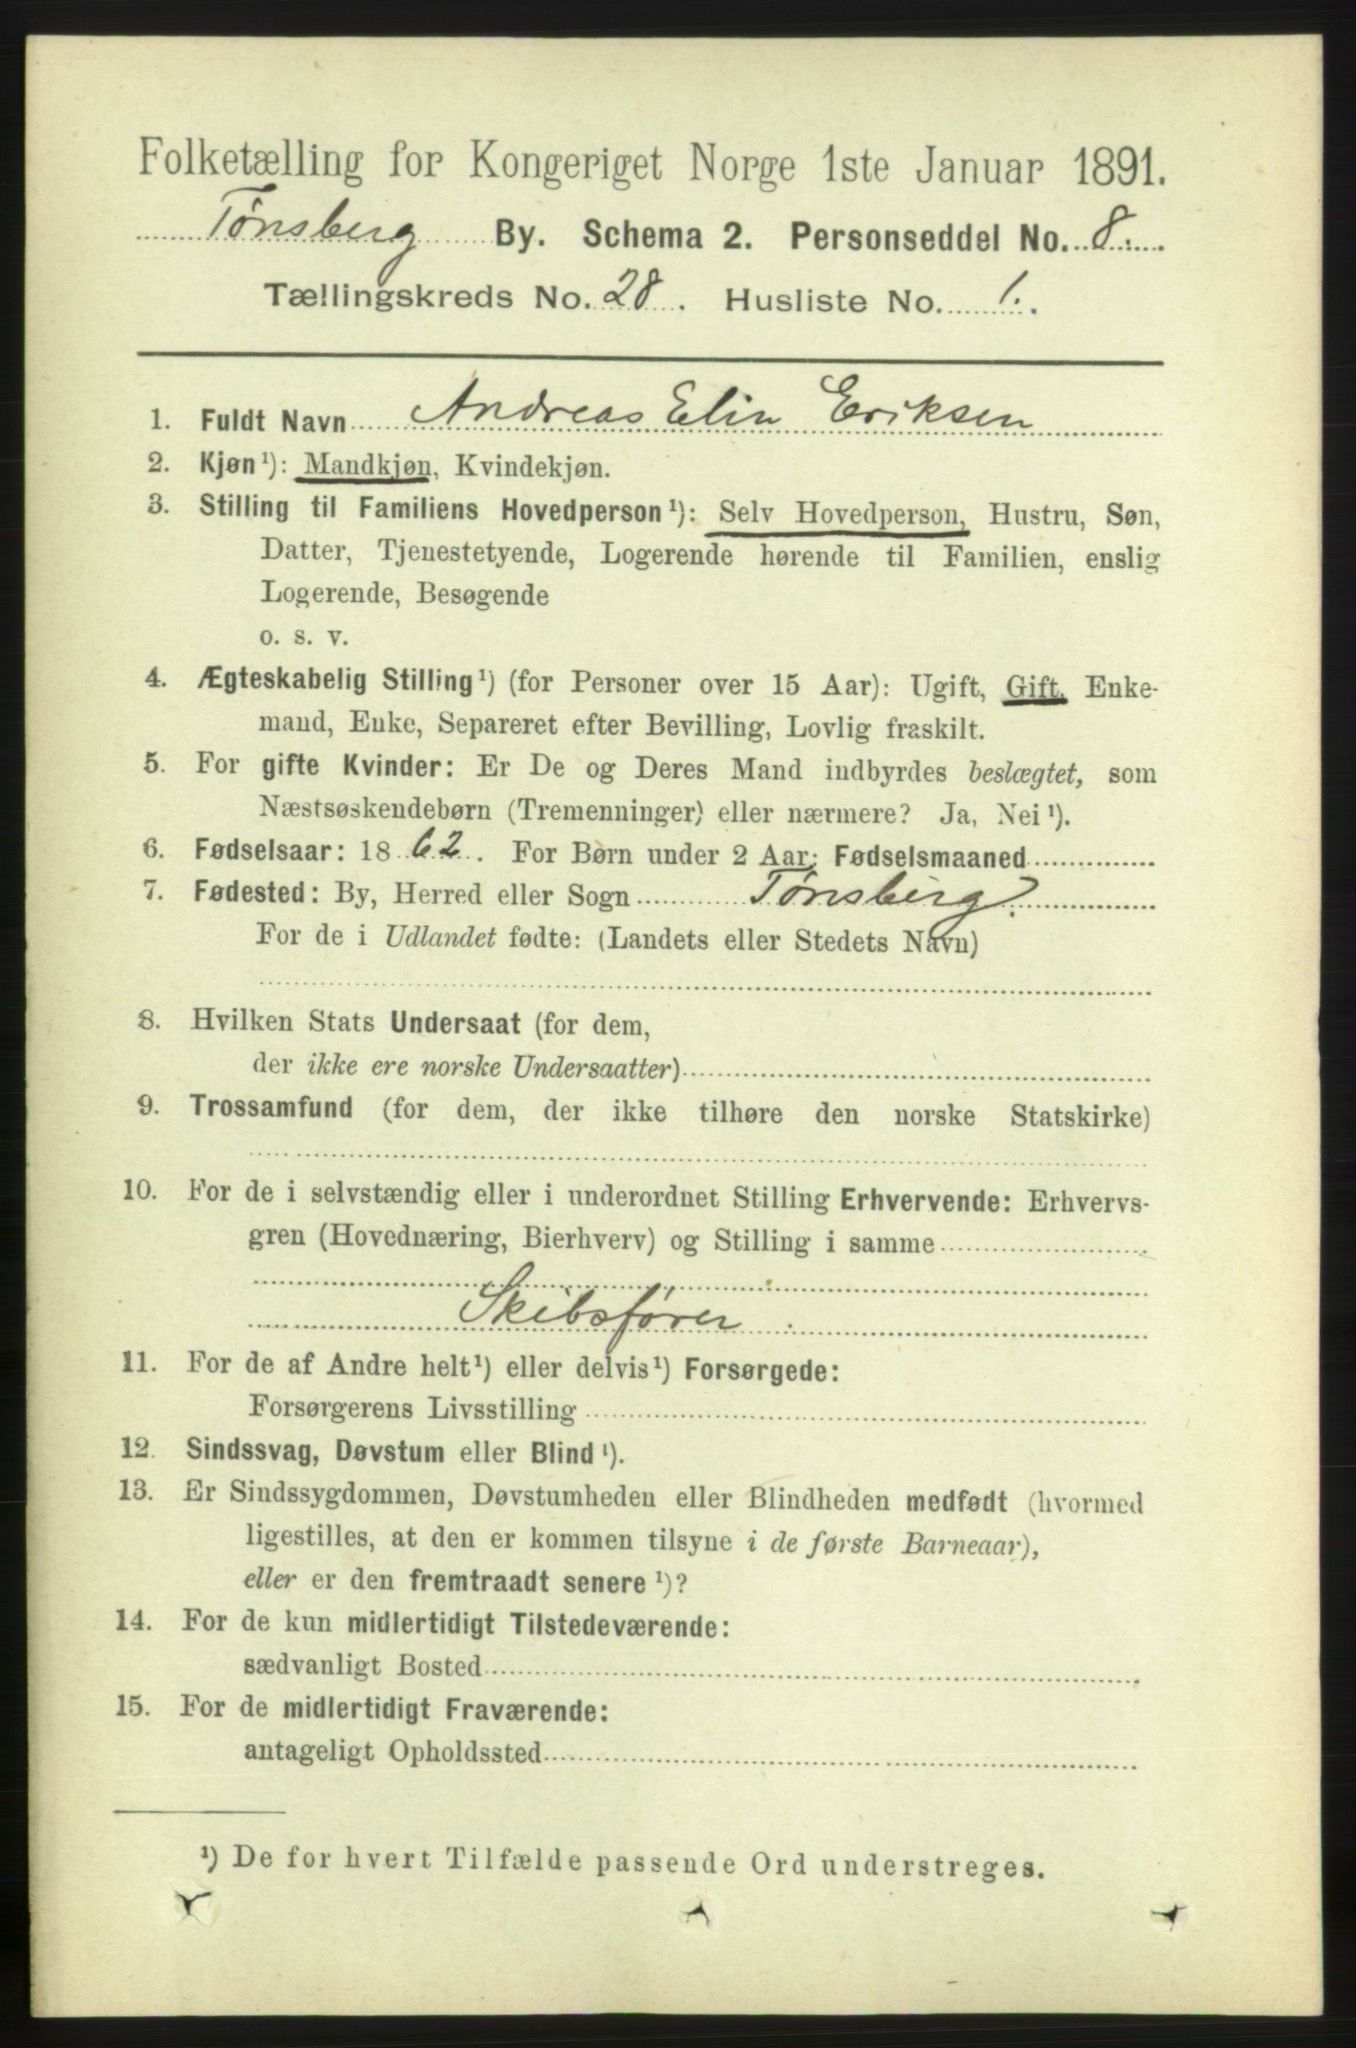 Folketælling for Kongeriget Norge 1ste Januar 1891.
Tønsberg By. Schema 2. Personseddel No. 8.
Tællingskreds No. 28. Husliste No. 1.
1. Fuldt Navn Andreas Elin Eriksen
2. Kjøn ¹): Mandkjøn, Kvindekjøn.
3. Stilling til Familiens Hovedperson ¹): Selv Hovedperson, Hustru, Søn,
Datter, Tjenestetyende, Logerende hørende til Familien, enslig
Logerende, Besøgende
o. s. v.
4. Ægteskabelig Stilling ¹) (for Personer over 15 Aar): Ugift, Gift, Enke-
mand, Enke, Separeret efter Bevilling, Lovlig fraskilt.
5. For gifte Kvinder: Er De og Deres Mand indbyrdes beslægtet, som
Næstsøskendebørn (Tremenninger) eller nærmere? Ja, Nei ¹).
6. Fødselsaar: 1862. For Børn under 2 Aar: Fødselsmaaned
7. Fødested: By, Herred eller Sogn Tønsberg.
For de i Udlandet fødte: (Landets eller Stedets Navn)
8. Hvilken Stats Undersaat (for dem,
der ikke ere norske Undersaatter)
9. Trossamfund (for dem, der ikke tilhøre den norske Statskirke)
10. For de i selvstændig eller i underordnet Stilling Erhvervende: Erhvervs-
gren (Hovednæring, Bierhverv) og Stilling i samme
Skibsfører
11. For de af Andre helt ¹) eller delvis ¹) Forsørgede:
Forsørgerens Livsstilling
12. Sindssvag, Døvstum eller Blind ¹).
13. Er Sindssygdommen, Døvstumheden eller Blindheden medfødt (hvormed
ligestilles, at den er kommen tilsyne i de første Barneaar),
eller er den fremtraadt senere ¹)?
14. For de kun midlertidigt Tilstedeværende:
sædvanligt Bosted
15. For de midlertidigt Fraværende:
antageligt Opholdssted
¹) De for hvert Tilfælde passende Ord understreges.